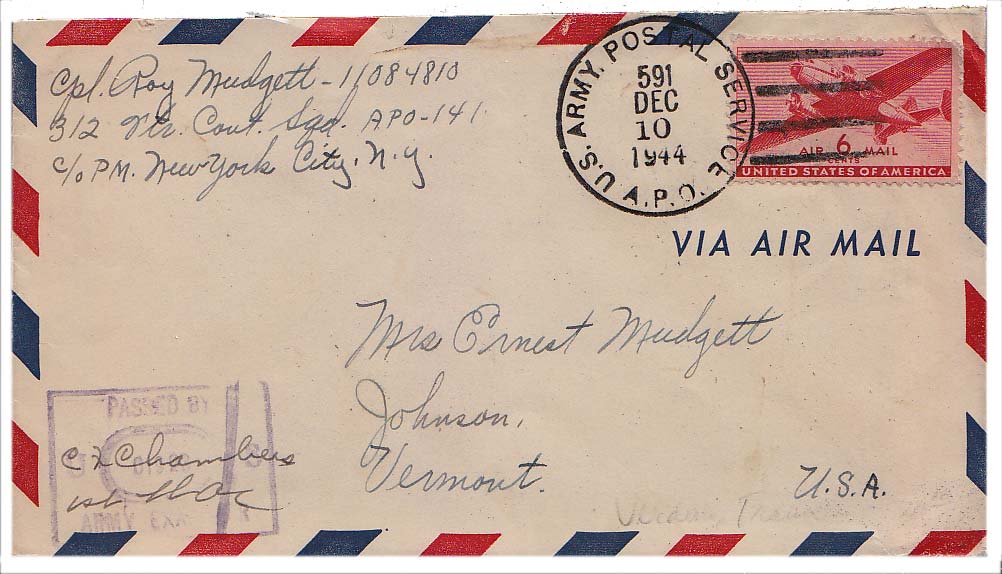 Cpl. Roy Mudgett - 11084810
312 Ftr. Cont. Sqd. APO-141
c/o PM. New York City, N.Y.
U.S. ARMY. POSTAL SERVICE
591
DEC
10
1944
A.P.O.
AIR 6 MAIL
CENTS
UNITED STATES OF AMERICA
VIA AIR MAIL
Mrs Ernest Mudgett
Johnson,
Vermont.
U.S.A.
PASSED BY
Chambers
1st
ARMY
Verdun,